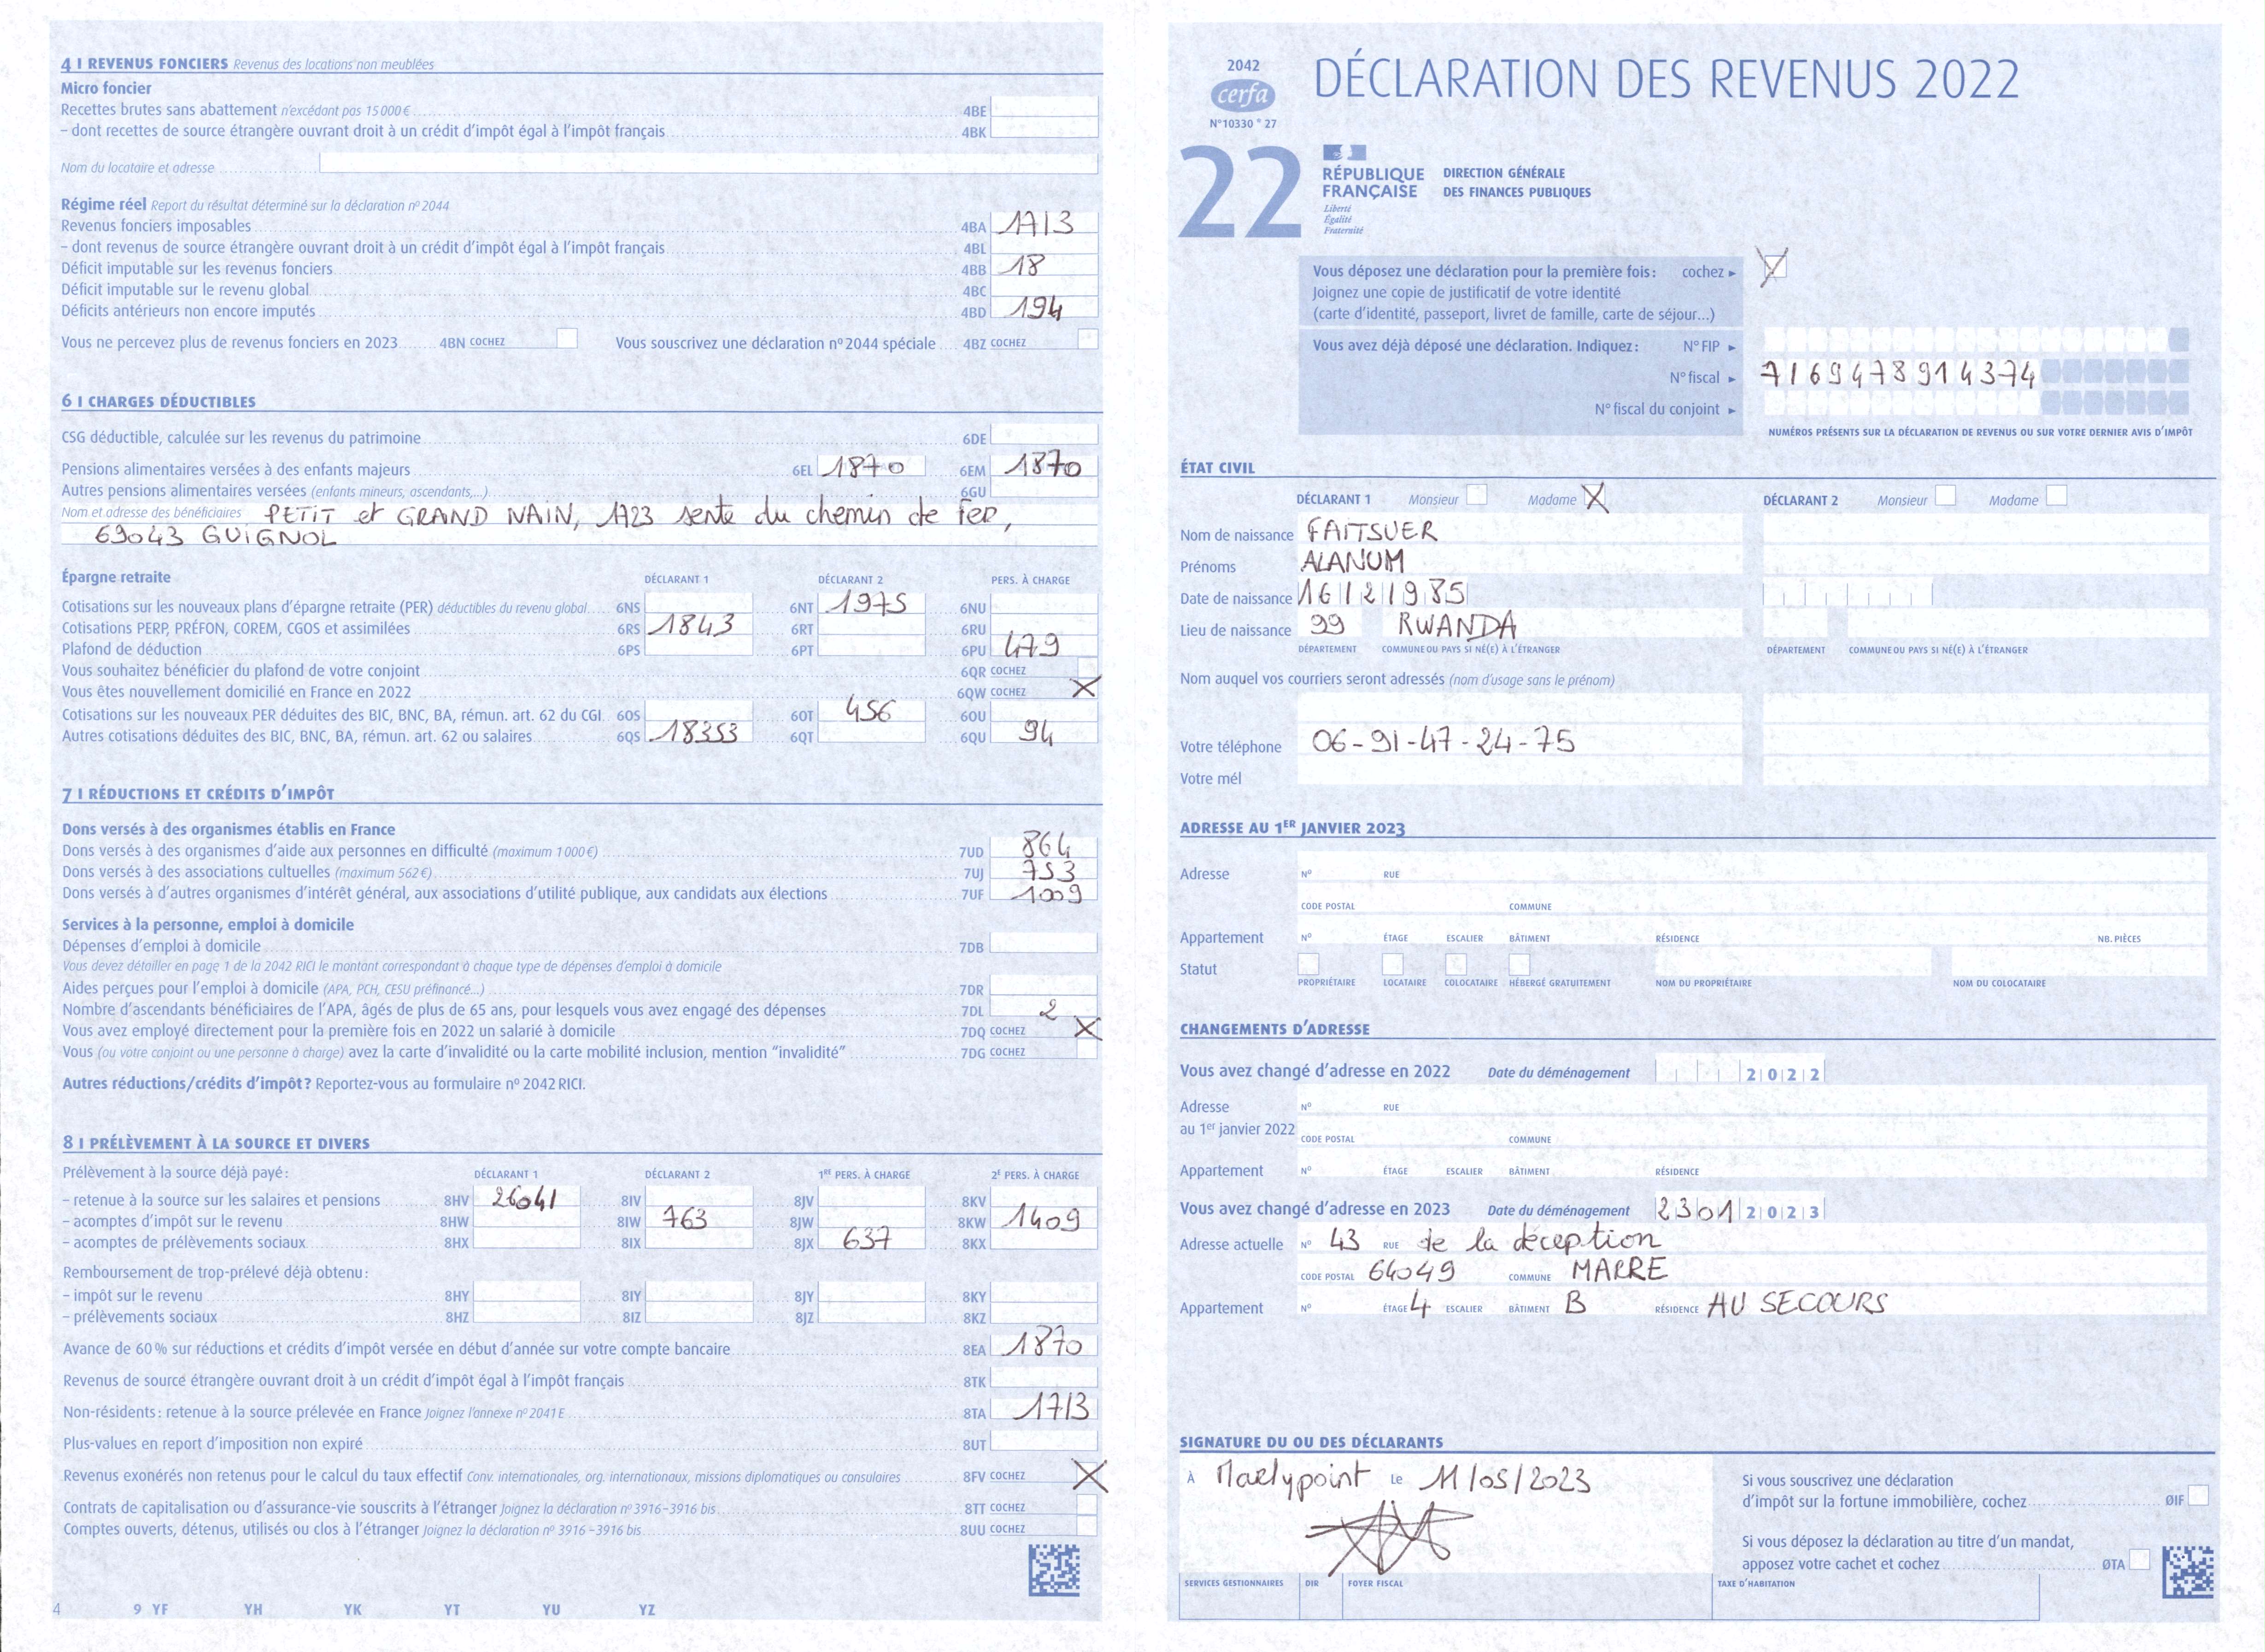 4 I REVENUS FONCIERS Revenus des locations non meublées
Micro foncier
Recettes brutes sans abattement n'excédant pas 15 000 € 4BE
– dont recettes de source étrangère ouvrant droit à un crédit d'impôt égal à l'impôt français 4BK
Nom du locataire et adresse
Régime réel Report du résultat déterminé sur la déclaration nº 2044
Revenus fonciers imposables 4BA 1713
– dont revenus de source étrangère ouvrant droit à un crédit d'impôt égal à l'impôt français 4BL
Déficit imputable sur les revenus fonciers 4BB 18
Déficit imputable sur le revenu global 4BC
Déficits antérieurs non encore imputés 4BD 194
Vous ne percevez plus de revenus fonciers en 2023 4BN COCHEZ Vous souscrivez une déclaration nº 2044 spéciale 4BZ COCHEZ
6 I CHARGES DÉDUCTIBLES
CSG déductible, calculée sur les revenus du patrimoine 6DE
Pensions alimentaires versées à des enfants majeurs 6EL 1870 6EM 1870
Autres pensions alimentaires versées (enfants mineurs, ascendants,...) 6GU
Nom et adresse des bénéficiaires PETIT et GRAND NAIN, 1723 sente du chemin de fer,
69043 GUIGNOL
Épargne retraite DÉCLARANT 1 DÉCLARANT 2 PERS. À CHARGE
Cotisations sur les nouveaux plans d'épargne retraite (PER) déductibles du revenu global 6NS 6NT 1975 6NU
Cotisations PERP, PRÉFON, COREM, CGOS et assimilées 6RS 1843 6RT 6RU
Plafond de déduction 6PS 6PT 6PU 479
Vous souhaitez bénéficier du plafond de votre conjoint 6QR COCHEZ
Vous êtes nouvellement domicilié en France en 2022 6QW COCHEZ X
Cotisations sur les nouveaux PER déduites des BIC, BNC, BA, rémun. art. 62 du CGI 6OS 6OT 456 6OU
Autres cotisations déduites des BIC, BNC, BA, rémun. art. 62 ou salaires 6QS 18353 6QT 6QU 94
7 I RÉDUCTIONS ET CRÉDITS D'IMPÔT
Dons versés à des organismes établis en France
Dons versés à des organismes d'aide aux personnes en difficulté (maximum 1 000 €) 7UD 864
Dons versés à des associations cultuelles (maximum 562 €) 7UJ 753
Dons versés à d'autres organismes d'intérêt général, aux associations d'utilité publique, aux candidats aux élections 7UF 1009
Services à la personne, emploi à domicile
Dépenses d'emploi à domicile 7DB
Vous devez détailler en page 1 de la 2042 RICI le montant correspondant à chaque type de dépenses d'emploi à domicile
Aides perçues pour l'emploi à domicile (APA, PCH, CESU préfinancé...) 7DR
Nombre d'ascendants bénéficiaires de l'APA, âgés de plus de 65 ans, pour lesquels vous avez engagé des dépenses 7DL 2
Vous avez employé directement pour la première fois en 2022 un salarié à domicile 7DQ COCHEZ X
Vous (ou votre conjoint ou une personne à charge) avez la carte d'invalidité ou la carte mobilité inclusion, mention "invalidité" 7DG COCHEZ
Autres réductions/crédits d'impôt ? Reportez-vous au formulaire nº 2042 RICI.
8 I PRÉLÈVEMENT À LA SOURCE ET DIVERS
Prélèvement à la source déjà payé : DÉCLARANT 1 DÉCLARANT 2 1RE PERS. À CHARGE 2E PERS. À CHARGE
– retenue à la source sur les salaires et pensions 8HV 26041 8IV 8JV 8KV
– acomptes d'impôt sur le revenu 8HW 8IW 763 8JW 8KW 1409
– acomptes de prélèvements sociaux 8HX 8IX 8JX 637 8KX
Remboursement de trop-prélevé déjà obtenu :
– impôt sur le revenu 8HY 8IY 8JY 8KY
– prélèvements sociaux 8HZ 8IZ 8JZ 8KZ
Avance de 60 % sur réductions et crédits d'impôt versée en début d'année sur votre compte bancaire 8EA 1870
Revenus de source étrangère ouvrant droit à un crédit d'impôt égal à l'impôt français 8TK
Non-résidents : retenue à la source prélevée en France Joignez l'annexe nº 2041 E 8TA 1713
Plus-values en report d'imposition non expiré 8UT
Revenus exonérés non retenus pour le calcul du taux effectif Conv. internationales, org. internationaux, missions diplomatiques ou consulaires 8FV COCHEZ X
Contrats de capitalisation ou d'assurance-vie souscrits à l'étranger Joignez la déclaration nº 3916–3916 bis 8TT COCHEZ
Comptes ouverts, détenus, utilisés ou clos à l'étranger Joignez la déclaration nº 3916–3916 bis 8UU COCHEZ
4 9 YF YH YK YT YU YZ
2042
cerfa
Nº 10330 * 27
DÉCLARATION DES REVENUS 2022
22
RÉPUBLIQUE FRANÇAISE
Liberté
Égalité
Fraternité
DIRECTION GÉNÉRALE
DES FINANCES PUBLIQUES
Vous déposez une déclaration pour la première fois : cochez ► X
Joignez une copie de justificatif de votre identité
(carte d'identité, passeport, livret de famille, carte de séjour...)
Vous avez déjà déposé une déclaration. Indiquez : Nº FIP ►
Nº fiscal ► 7169478914374
Nº fiscal du conjoint ►
NUMÉROS PRÉSENTS SUR LA DÉCLARATION DE REVENUS OU SUR VOTRE DERNIER AVIS D'IMPÔT
ÉTAT CIVIL
DÉCLARANT 1 Monsieur Madame X DÉCLARANT 2 Monsieur Madame
Nom de naissance FAITSUER
Prénoms ALANUM
Date de naissance 16121985
Lieu de naissance 99 RWANDA
DÉPARTEMENT COMMUNE OU PAYS SI NÉ(E) À L'ÉTRANGER DÉPARTEMENT COMMUNE OU PAYS SI NÉ(E) À L'ÉTRANGER
Nom auquel vos courriers seront adressés (nom d'usage sans le prénom)
Votre téléphone 06-91-47-24-75
Votre mél
ADRESSE AU 1ER JANVIER 2023
Adresse Nº RUE
CODE POSTAL COMMUNE
Appartement Nº ÉTAGE ESCALIER BÂTIMENT RÉSIDENCE NB. PIÈCES
Statut
PROPRIÉTAIRE LOCATAIRE COLOCATAIRE HÉBERGÉ GRATUITEMENT NOM DU PROPRIÉTAIRE NOM DU COLOCATAIRE
CHANGEMENTS D'ADRESSE
Vous avez changé d'adresse en 2022 Date du déménagement 2022
Adresse Nº RUE
au 1er janvier 2022 CODE POSTAL COMMUNE
Appartement Nº ÉTAGE ESCALIER BÂTIMENT RÉSIDENCE
Vous avez changé d'adresse en 2023 Date du déménagement 23012023
Adresse actuelle Nº 43 RUE de la déception
CODE POSTAL 64049 COMMUNE MARRE
Appartement Nº ÉTAGE 4 ESCALIER BÂTIMENT B RÉSIDENCE AU SECOURS
SIGNATURE DU OU DES DÉCLARANTS
À Maelypoint Le 11/05/2023
Si vous souscrivez une déclaration
d'impôt sur la fortune immobilière, cochez ØIF
Si vous déposez la déclaration au titre d'un mandat,
apposez votre cachet et cochez ØTA
SERVICES GESTIONNAIRES DIR FOYER FISCAL TAXE D'HABITATION